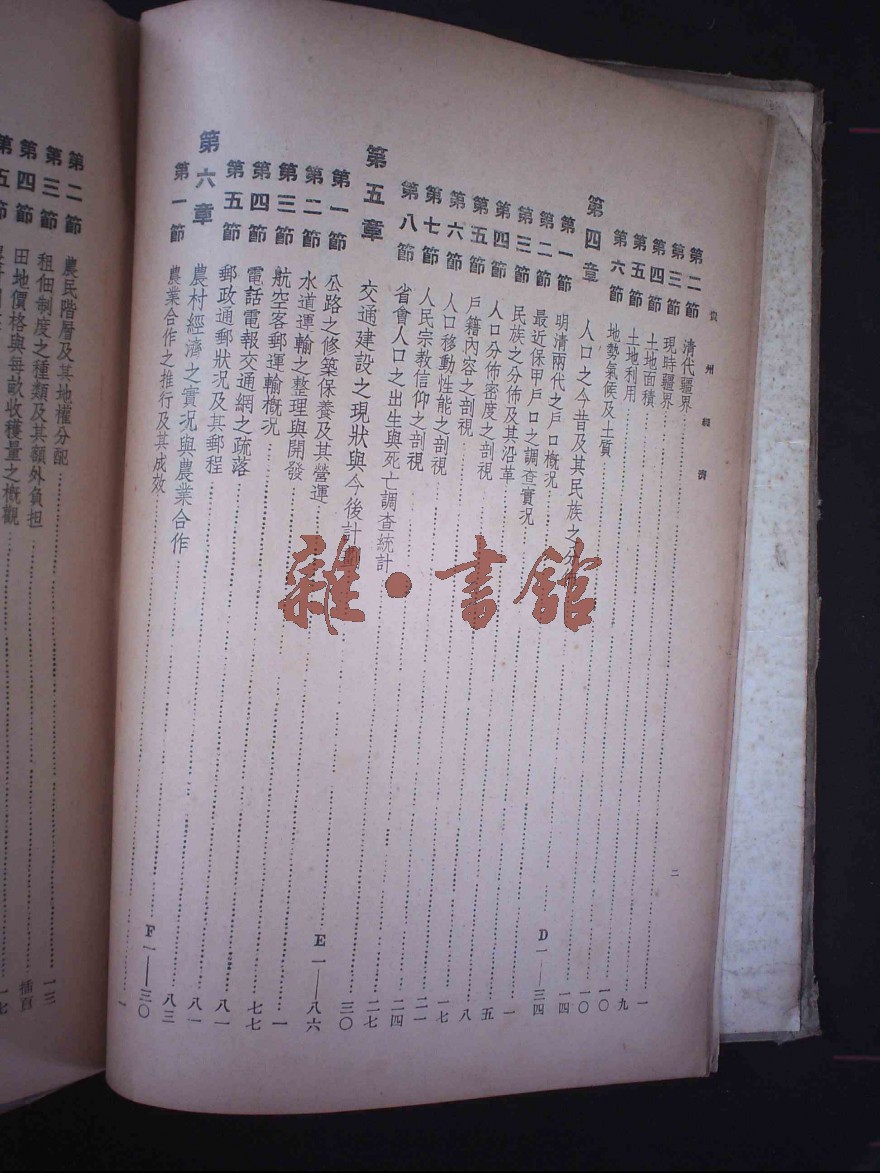 貴州經濟
二
第二節 清代疆界……一
第三節 現時疆界……九
第四節 土地面積……一〇
第五節 土地利用……一〇
第六節 地勢氣候及土質……一四
第四章 人口之今昔及其民族之分佈……D一——三四
第一節 明清兩代之戶口概況……一
第二節 最近保甲戶口之調查實況……五
第三節 民族之分佈及其沿革……八
第四節 人口分佈密度之剖視……一七
第五節 戶籍內容之剖視……二一
第六節 人口移動性能之剖視……二四
第七節 人民宗教信仰之剖視……二七
第八節 省會人口之出生與死亡調查統計……三〇
第五章 交通建設之現狀與今後計劃……E一——八六
第一節 公路之修築保養及其營運……一
第二節 水道運輸之整理與開發……七七
第三節 航空客郵運輸概況……八一
第四節 電話電報交通網之疏落……八一
第五節 郵政通郵狀況及其郵程……八三
第六章 農村經濟之實況與農業合作……F一——三〇
第一節 農業合作之推行及其成效……一
第二節 農民階層及其地權分配……一三
第三節 租佃制度之種類及其額外負担……插頁
第四節 田地價格與每畝收穫量之概觀……一七
第五節
雜·書館